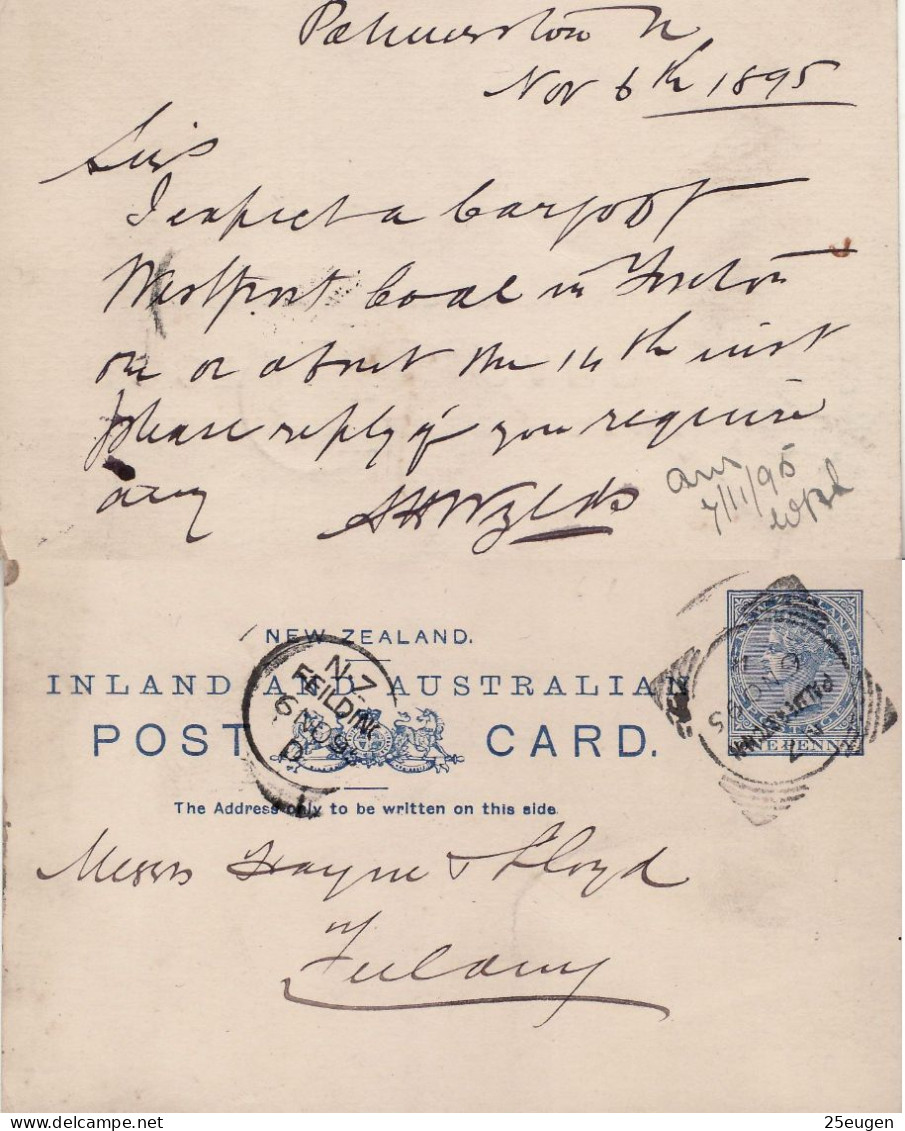 Palmerston N
Nov 6th 1895
Sirs
I expect a Cargo of
Westport Coal in Foxton
on or about the 14th inst
please reply if you require
any
ans
7/11/95
NEW ZEALAND.
INLAND AND AUSTRALIA
POST CARD.
The Address only to be written on this side.
N.Z.
FEILDING
6 NO 95
ONE PENNY
Messrs & Lloyd
25eugen